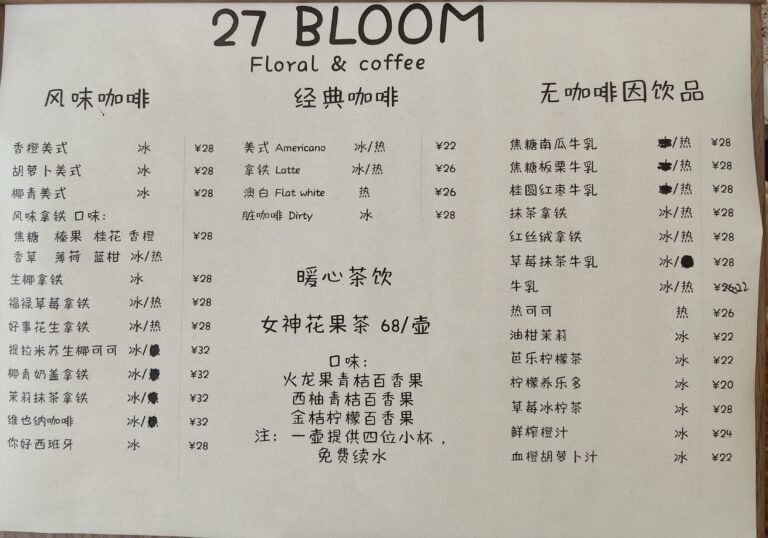 27 BLOOM
Floral & coffee
风味咖啡
香橙美式 冰 ¥28
胡萝卜美式 冰 ¥28
椰青美式 冰 ¥28
风味拿铁 口味：
焦糖 榛果 桂花 香橙 ¥28
香草 薄荷 蓝柑 冰/热
生椰拿铁 冰 ¥28
福禄草莓拿铁 冰/热 ¥28
好事花生拿铁 冰/热 ¥28
提拉米苏生椰可可 冰/ ¥32
椰青奶盖拿铁 冰/ ¥32
茉莉抹茶拿铁 冰/ ¥32
维也纳咖啡 冰/ ¥32
你好西班牙 冰 ¥28
经典咖啡
美式 Americano 冰/热 ¥22
拿铁 Latte 冰/热 ¥26
澳白 Flat white 热 ¥26
脏咖啡 Dirty 冰 ¥28
暖心茶饮
女神花果茶 68/壶
口味：
火龙果青桔百香果
西柚青桔百香果
金桔柠檬百香果
注： 一壶提供四位小杯，
免费续水
无咖啡因饮品
焦糖南瓜牛乳 /热 ¥28
焦糖板栗牛乳 /热 ¥28
桂圆红枣牛乳 /热 ¥28
抹茶拿铁 冰/热 ¥28
红丝绒拿铁 冰/热 ¥28
草莓抹茶牛乳 冰/ ¥28
牛乳 冰/热 ¥26 22
热可可 热 ¥26
油柑茉莉 冰 ¥22
芭乐柠檬茶 冰 ¥22
柠檬养乐多 冰 ¥20
草莓冰柠茶 冰 ¥28
鲜榨橙汁 冰 ¥24
血橙胡萝卜汁 冰 ¥22